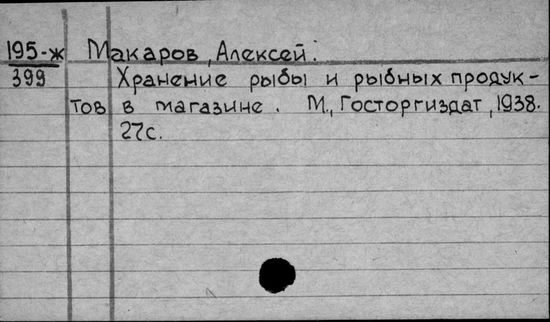 195-ж Макаров, Алексей.
399 Хранение рыбы и рыбных продук-
тов в магазине. М., Госторгиздат, 1938.
27с.